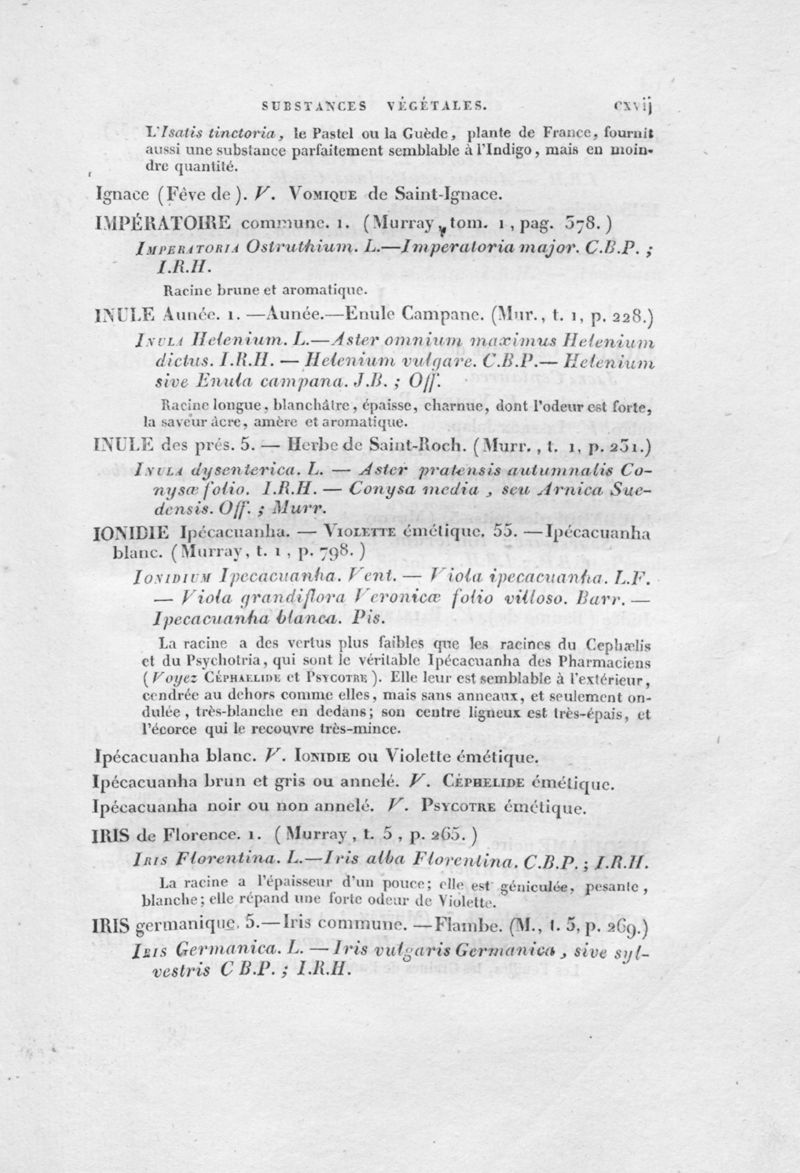 SUBSTANCES VÉGÉTALES. cxvij
L'Isatis tinctoria, le Pastel ou la Guède, plante de France, fournit
aussi une substance parfaitement semblable à l'Indigo, mais en moin-
dre quantité.
Ignace (Fêve de). V. VOMIQUE de Saint-Ignace.
IMPÉRATOIRE commune. 1. (Murray, tom. 1, pag. 578.)
IMPERATORIA Ostruthium. L.—Imperatoria major. C.B.P. ;
I.R.H.
Racine brune et aromatique.
INULE Aunée. 1. —Aunée.—Enule Campane. (Mur., t. 1, p. 228.)
INULA Helenium. L.—Aster omnium maximus Helenium
dictus. I.R.H. — Helenium vulgare. C.B.P.— Helenium
sive Enula campana. J.B. ; Off.
Racine longue, blanchâtre, épaisse, charnue, dont l'odeur est forte,
la saveur âcre, amère et aromatique.
INULE des prés. 5. — Herbe de Saint-Roch. (Murr., t. 1, p. 231.)
INULA dysenterica. L. — Aster pratensis autumnalis Co-
nysæ folio. I.R.H. — Conysa media, seu Arnica Sue-
densis. Off. ; Murr.
IONIDIE Ipécacuanha. — VIOLETTE émétique. 55. —Ipécacuanha
blanc. (Murray, t. 1, p. 798.)
IONIDIUM Ipecacuanha. Vent. — Viola ipecacuanha. L.F.
— Viola grandiflora Veronicæ folio villoso. Barr. —
Ipecacuanha blanca. Pis.
La racine a des vertus plus faibles que les racines du Cephælis
et du Psychotria, qui sont le véritable Ipécacuanha des Pharmaciens
(Voyez CÉPHAELIDE et PSYCOTRE). Elle leur est semblable à l'extérieur,
cendrée au dehors comme elles, mais sans anneaux, et seulement on-
dulée, très-blanche en dedans; son centre ligneux est très-épais, et
l'écorce qui le recouvre très-mince.
Ipécacuanha blanc. V. IONIDIE ou Violette émétique.
Ipécacuanha brun et gris ou annelé. V. CÉPHELIDE émétique.
Ipécacuanha noir ou non annelé. V. PSYCOTRE émétique.
IRIS de Florence. 1. (Murray, t. 5, p. 265.)
IRIS Florentina. L.—Iris alba Florentina. C.B.P. ; I.R.H.
La racine a l'épaisseur d'un pouce; elle est géniculée, pesante,
blanche; elle répand une forte odeur de Violette.
IRIS germanique. 5.—Iris commune. —Flambe. (M., t. 5, p. 269.)
IRIS Germanica. L. —Iris vulgaris Germanica, sive syl-
vestris C B.P. ; I.R.H.